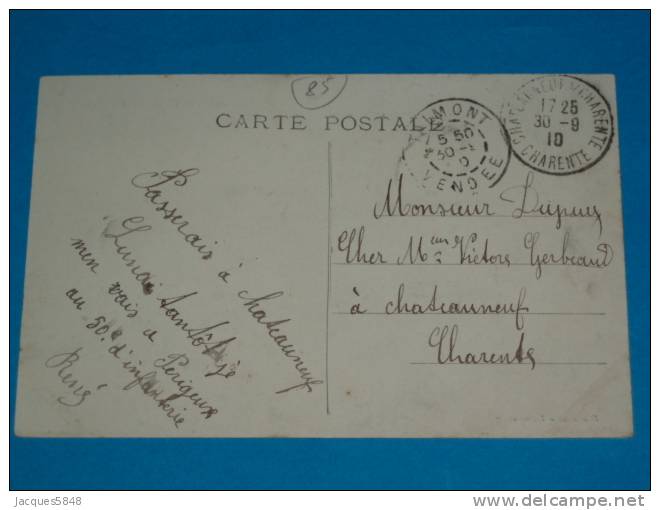 85
CARTE POSTALE
5 50
30
VENDEE
CHATEAUNEUF S/ CHARENTE
17 25
30 - 9
10
CHARENTE
Passerais à chateauneuf
Lundi tantôt je
men vais a Périgeux
au 50e d'infanterie
René
Monsieur Dupuy
Cher Mr Victors Gerbeaud
à chateauneuf
Charente
Jacques5848
delcampe.net